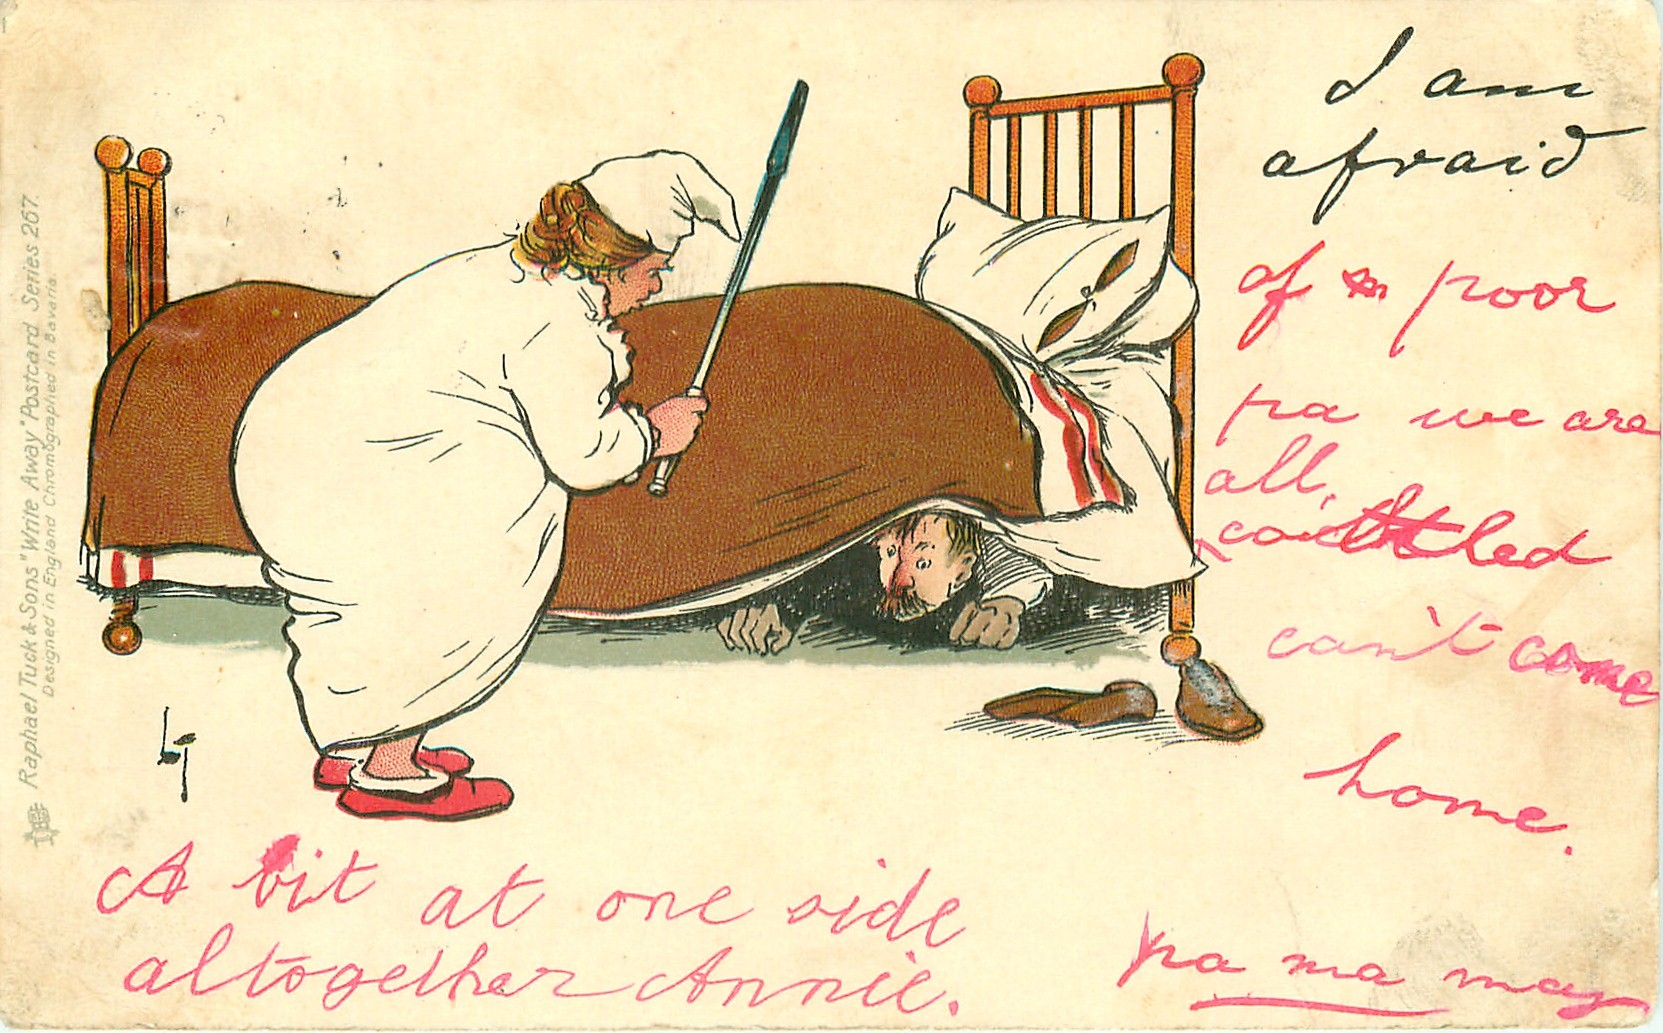 Raphael Tuck & Sons' "Write Away" Postcard Series 267.
Designed in England Chromographed in Bavaria.
I am
afraid
of poor
pa we are
all,
can't come
home.
A bit at one side
altogether Annie.
pa ma may